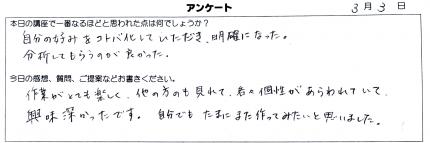 アンケート
3月3日
本日の講座で一番なるほどと思われた点は何でしょうか？
自分の好みをコトバ化していただき、明確になった。
分析してもらうのが良かった。
今日の感想、質問、ご提案などお書きください。
作業がとても楽しく、他の方のも見れて、各々個性があらわれていて、
興味深かったです。自分でもたまにまた作ってみたいと思いました。